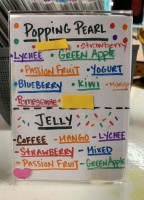 Popping Pearl
• Strawberry
• Lychee • Green Apple
• Passion Fruit • Yogurt
• Blueberry • Kiwi • Mango
• Pomegranate •
Jelly
- Coffee - Mango - Lychee
- Strawberry - Mixed
- Passion Fruit - Green Apple